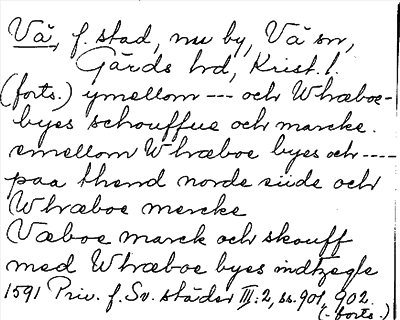 Vä, f. stad, nu by, Vä sn,
Gärds hd, Krist. l.
(forts.) ymellom --- och Whræboe-
byes schouffue och marcke.
emellom Whræboe byes och ----
paa thend norde siide och
Whræboe mercke
Væboe marck och skouff
med Whræboe byes indtzegle
1591 Priv. f. Sv. städer III:2, ss. 901, 902.
(-forts.)